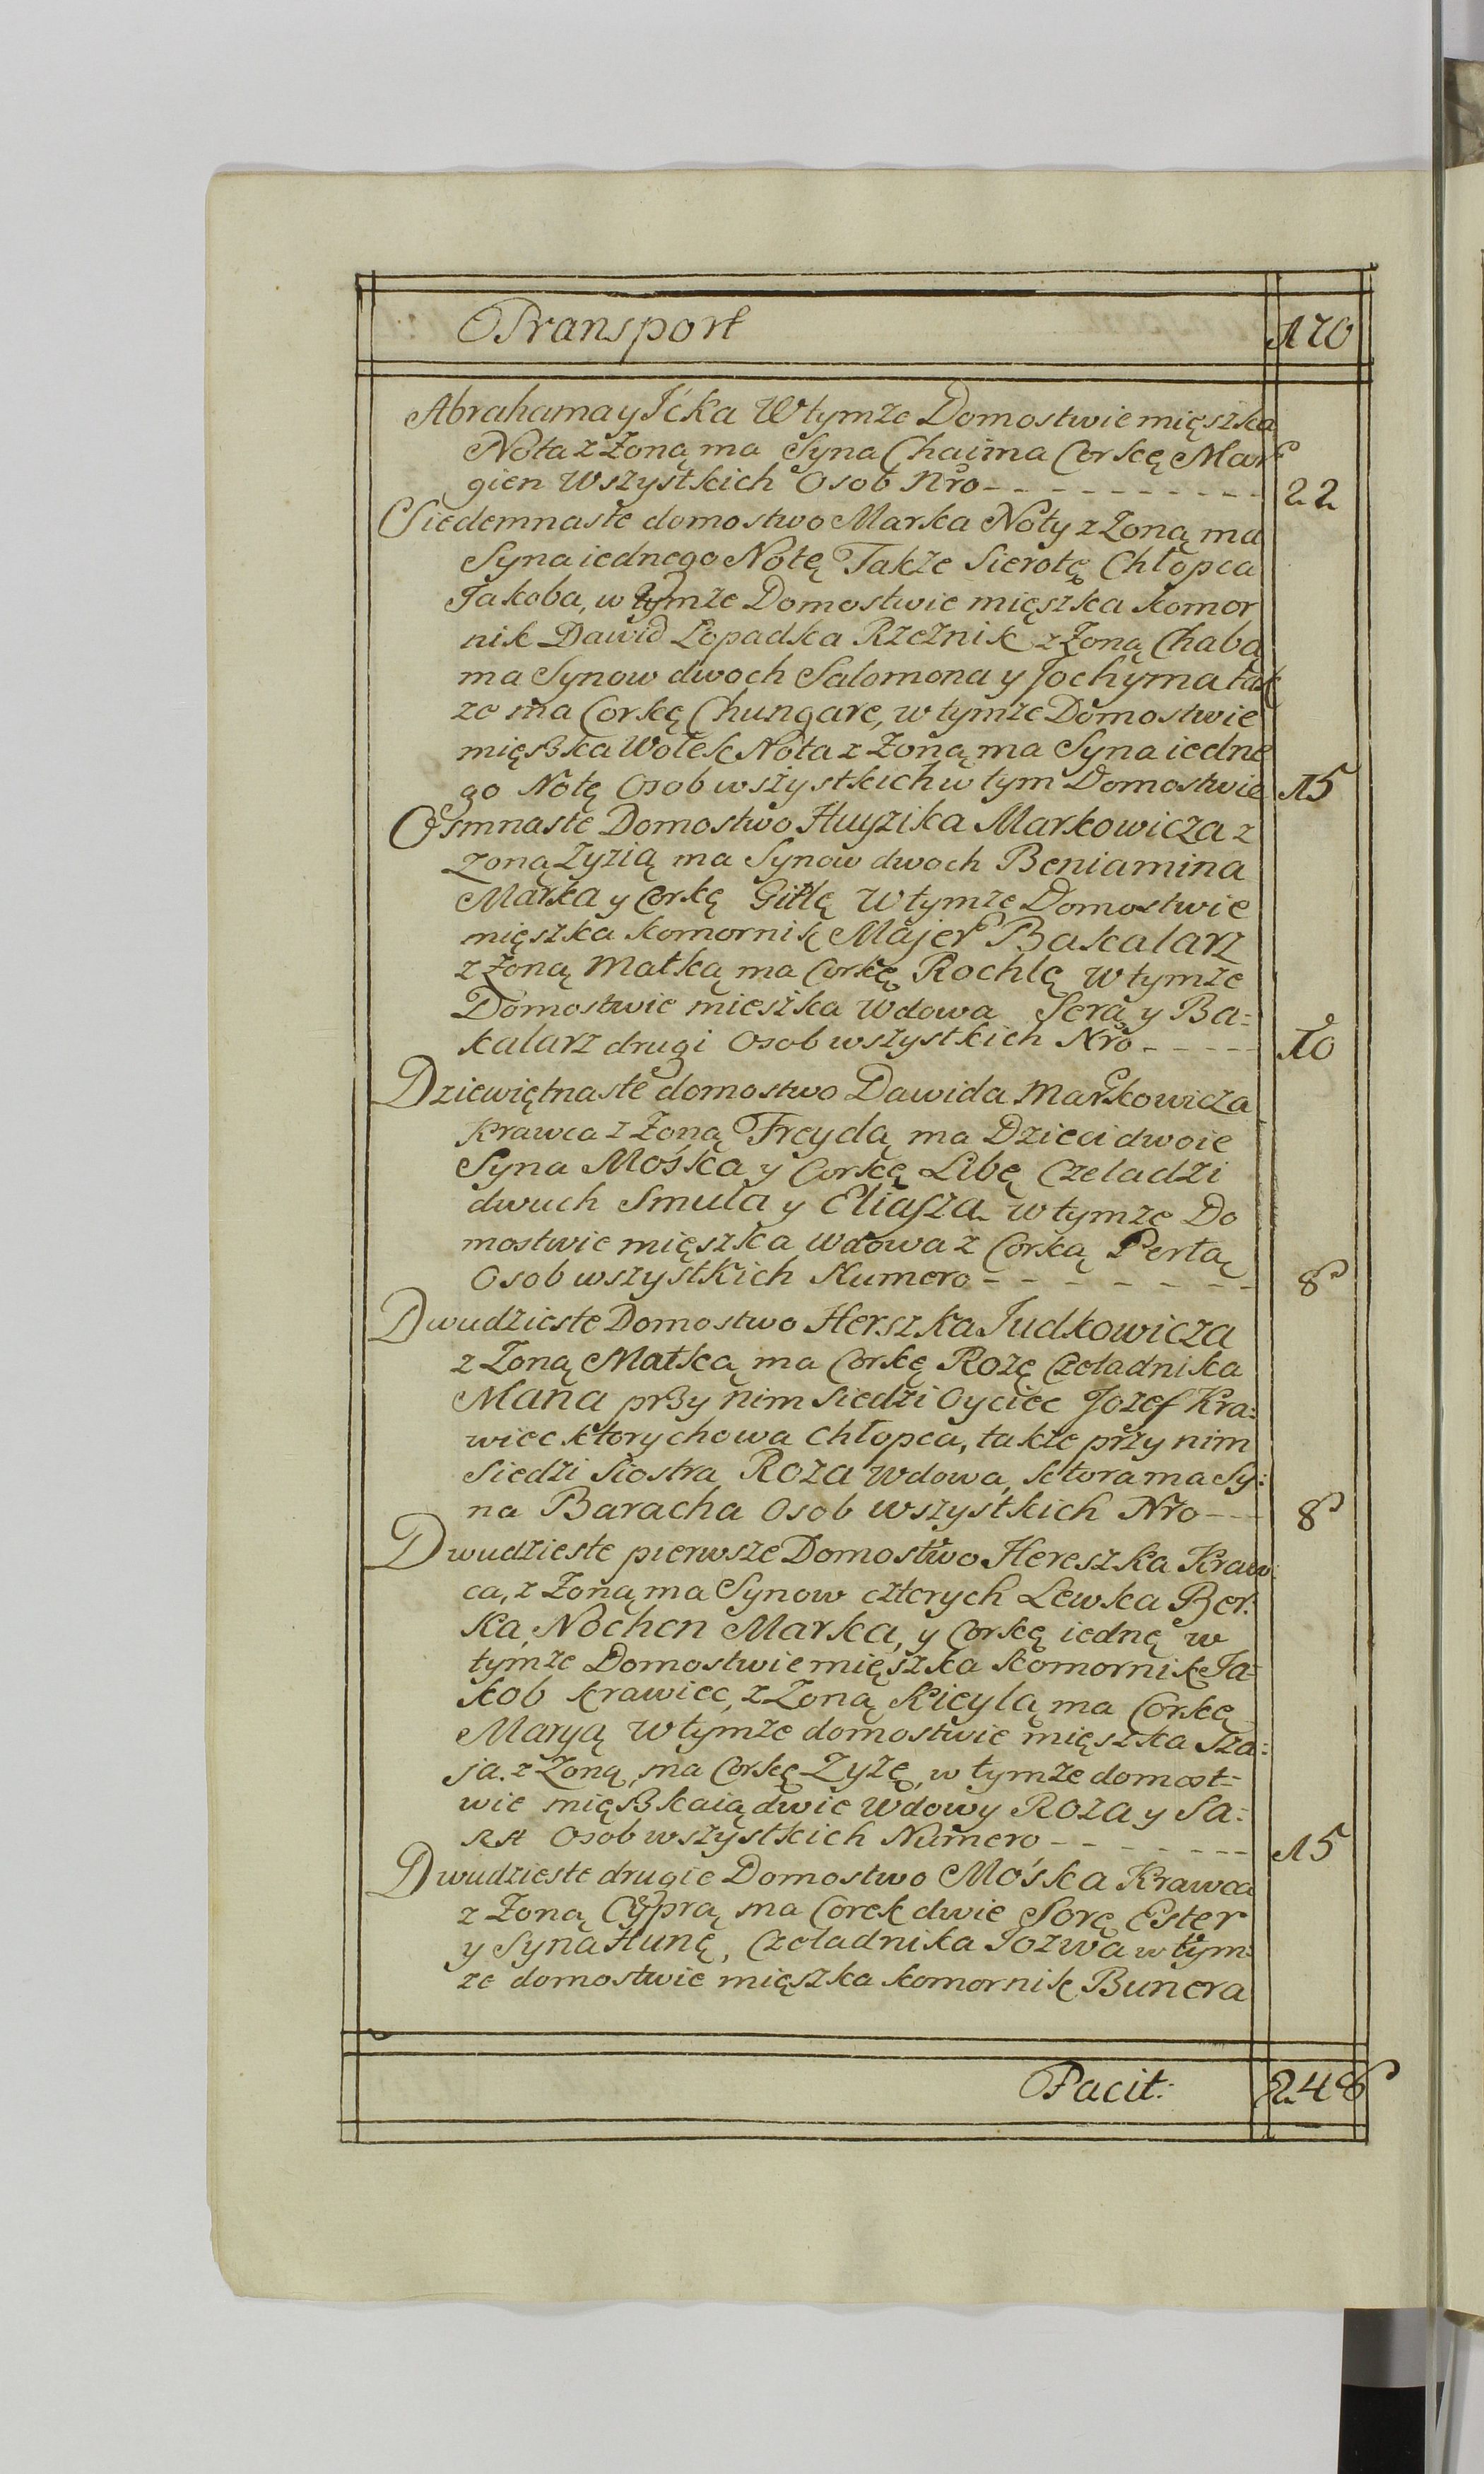 Transport 170
Abrahama y Icka W tymże Domostwie mięszka
Nota z Żoną ma Syna Chaima Corkę Mar
gien Wszystkich Osob Nro - - - - - - - - - - 22
Siedemnaste domostwo Marka Noty z Żoną ma
Syna iednego Notę Także Sierotę Chłopca
Jakoba, w tymże Domostwie mięszka komor
nik Dawid Lopadka Rzeźnik z Żoną Chabą
ma Synow dwoch Salomona y Jochyma tak
że ma Corkę Chungare, w tymże Domostwie
mięszka Wolek Nota z Żoną ma Syna iedne
go Notę Osob wszystkich w tym Domostwie 15
Osmnaste Domostwo Huyzika Markowicza z
Żoną Zyzią ma Synow dwoch Beniamina
Marka y Corkę Gitlę W tymże Domostwie
mięszka komornik Majer Bakalarz
z Żoną Matką ma Corkę Rochlę W tymże
Domostwie mieszka Wdowa Sera y Ba=
kalarz drugi Osob wszystkich Nro - - - - 10
Dziewiętnaste domostwo Dawida Markowicza
Krawca z Żoną Freydą ma Dzieci dwoie
Syna Mośka y Corkę Libę Czeladzi
dwuch Smula y Eliasza w tymże Do
mostwie mięszka Wdowa z Corką Perłą
Osob wszystkich Numero - - - - - - - 8
Dwudzieste Domostwo Herszka Judkowicza
z Żoną Matką ma Corkę Rozę Czeladnika
Mana przy nim Siedzi Oyciec Jozef Kra=
wiec ktory chowa Chłopca, także przy nim
Siedzi Siostra Roza Wdowa, ktora ma Sy=
na Baracha Osob wszystkich Nro - - - 8
Dwudzieste pierwsze Domostwo Hereszka Kraw
ca, z Żoną ma Synow czterych Lewka Ber=
ka, Nochen Marka, y Corkę iednę w
tymże Domostwie mięszka komornik Ja=
kob krawiec, z Żoną Kieylą ma Corkę
Maryą W tymże domostwie mięszka Sza=
ja. z Żoną, ma Corkę Zyzę, w tymże domost=
wie mięszkaią dwie Wdowy Roza y Sa=
ra Osob wszystkich Numero - - - - - - - 15
Dwudzieste drugie Domostwo Mośka Krawca
z Żoną Cyprą ma Corek dwie Sorę Ester
y Syna Hunę, Czeladnika Jozwa w tym=
że domostwie mięszka komornik Bunera
Facit: 248